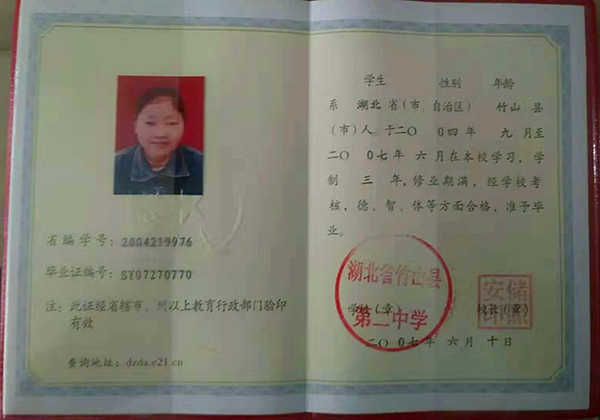 省编学号：2004219976
毕业证编号：SY07270770
注：此证经省辖市、州以上教育行政部门验印
有效
查询地址：dzda.e21.cn
学生 性别 年龄
系 湖北省（市、自治区） 竹山 县
（市）人，于二〇〇四年 九 月至
二〇〇七年 六 月在本校学习，学
制 三 年，修业期满，经学校考
核，德、智、体等方面合格，准予毕
业。
湖北省竹山县
第二中学
学校（章） 校长（章）
二〇〇七年 六 月 十 日